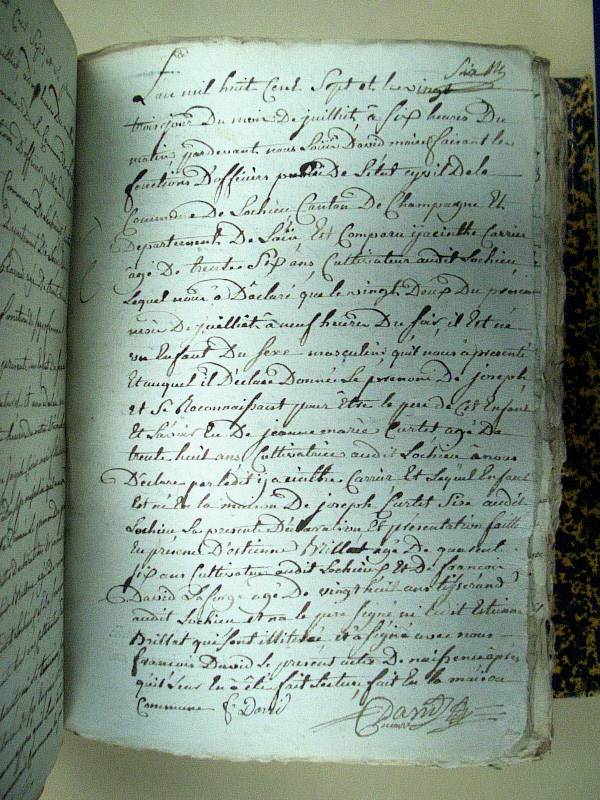 L'an mil huit Cent Sept et le vingt
trois jour Du mois De juilliet à Six heures Du
matin pardevant nous David maire faisant les
fonctions D'officiers public De l'état cyvil De la
Commune De Lochieu Canton De Champagne Et
Departement De Lain Est Comparu jyacinthe Carrier
agé De trente Six ans Cultivateur audit Lochieu
Lequel nous a Déclaré que le vingt Deux Du présent
mois De juilliet à neuf heures Du soir il Est né
un Enfant Du sexe masculin qu'il nous a présenté
Et auquel il Déclare Donner Le prénom De joseph
et Se Reconnaissant pour Être le père de Cet Enfant
Et Lavoir Eu De jeanne marie Curtet agé De
trente huit ans Cultivatrice audit Lochieu à nous
Déclaré par ledit jyacinthe Carrier Et Lequel Enfant
Est né En la maison De joseph Curtet Size audit
Lochieu La présent Déclaration Et présentation faite
En présence D'etienne Billet agé De quarante
six ans Cultivateur audit Lochieux Et De francois
David La forge agé De vingt huit ans tisserand
audit Lochieu et na le père Signé ni Ledit Etienne
Brillat qui sont illiterée et à Signé avec nous
francois David Le présent acte De naissence après
qu'il Leur En à été fait Lecture fait En la maison
Commune f. David
David
maire